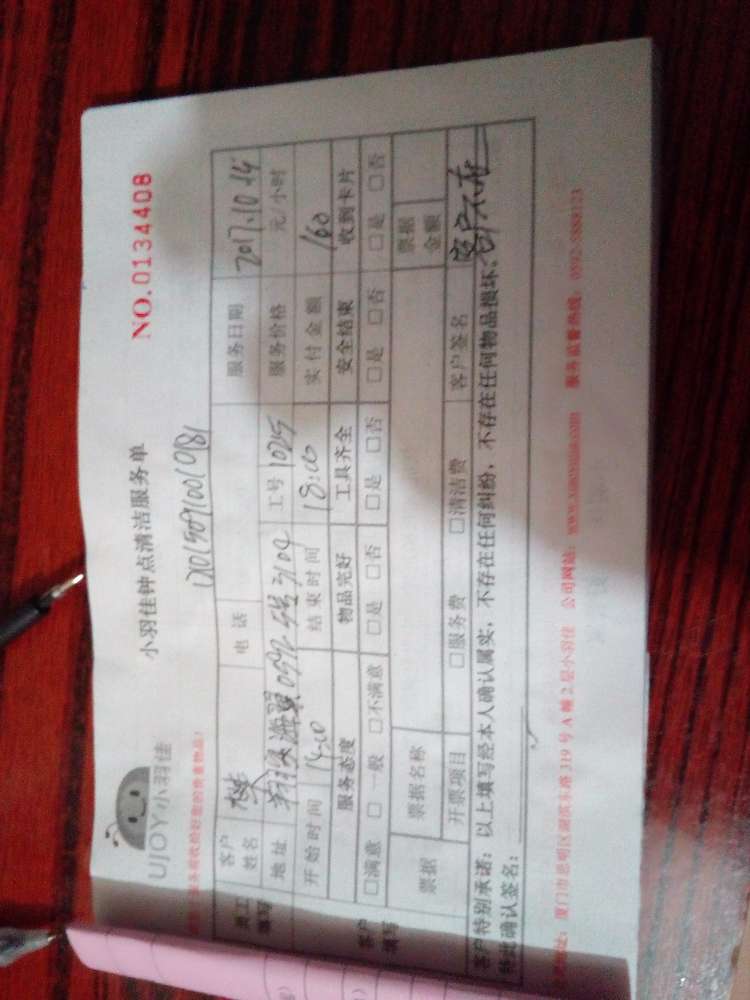 UJOY小羽佳
小羽佳钟点清洁服务单
NO.0134408
员工填写
客户姓名 电话 服务日期 2017.10.14
地址 工号 1025 服务价格 元/小时
开始时间 14:00 结束时间 18:00 实付金额 160
客户填写
服务态度 物品完好 工具齐全 安全结束 收到卡片
□满意 □一般 □不满意 □是 □否 □是 □否 □是 □否 □是 □否
票据 票据名称 票据金额
开票项目 □服务费 □清洁费 客户签名 客户不在
客户特别承诺：以上填写经本人确认属实，不存在任何纠纷，不存在任何物品损坏。
特此确认签名：
厦门市思明区湖滨东路319号A幢2层小羽佳 公司网站： 服务监督热线：0592-5888123